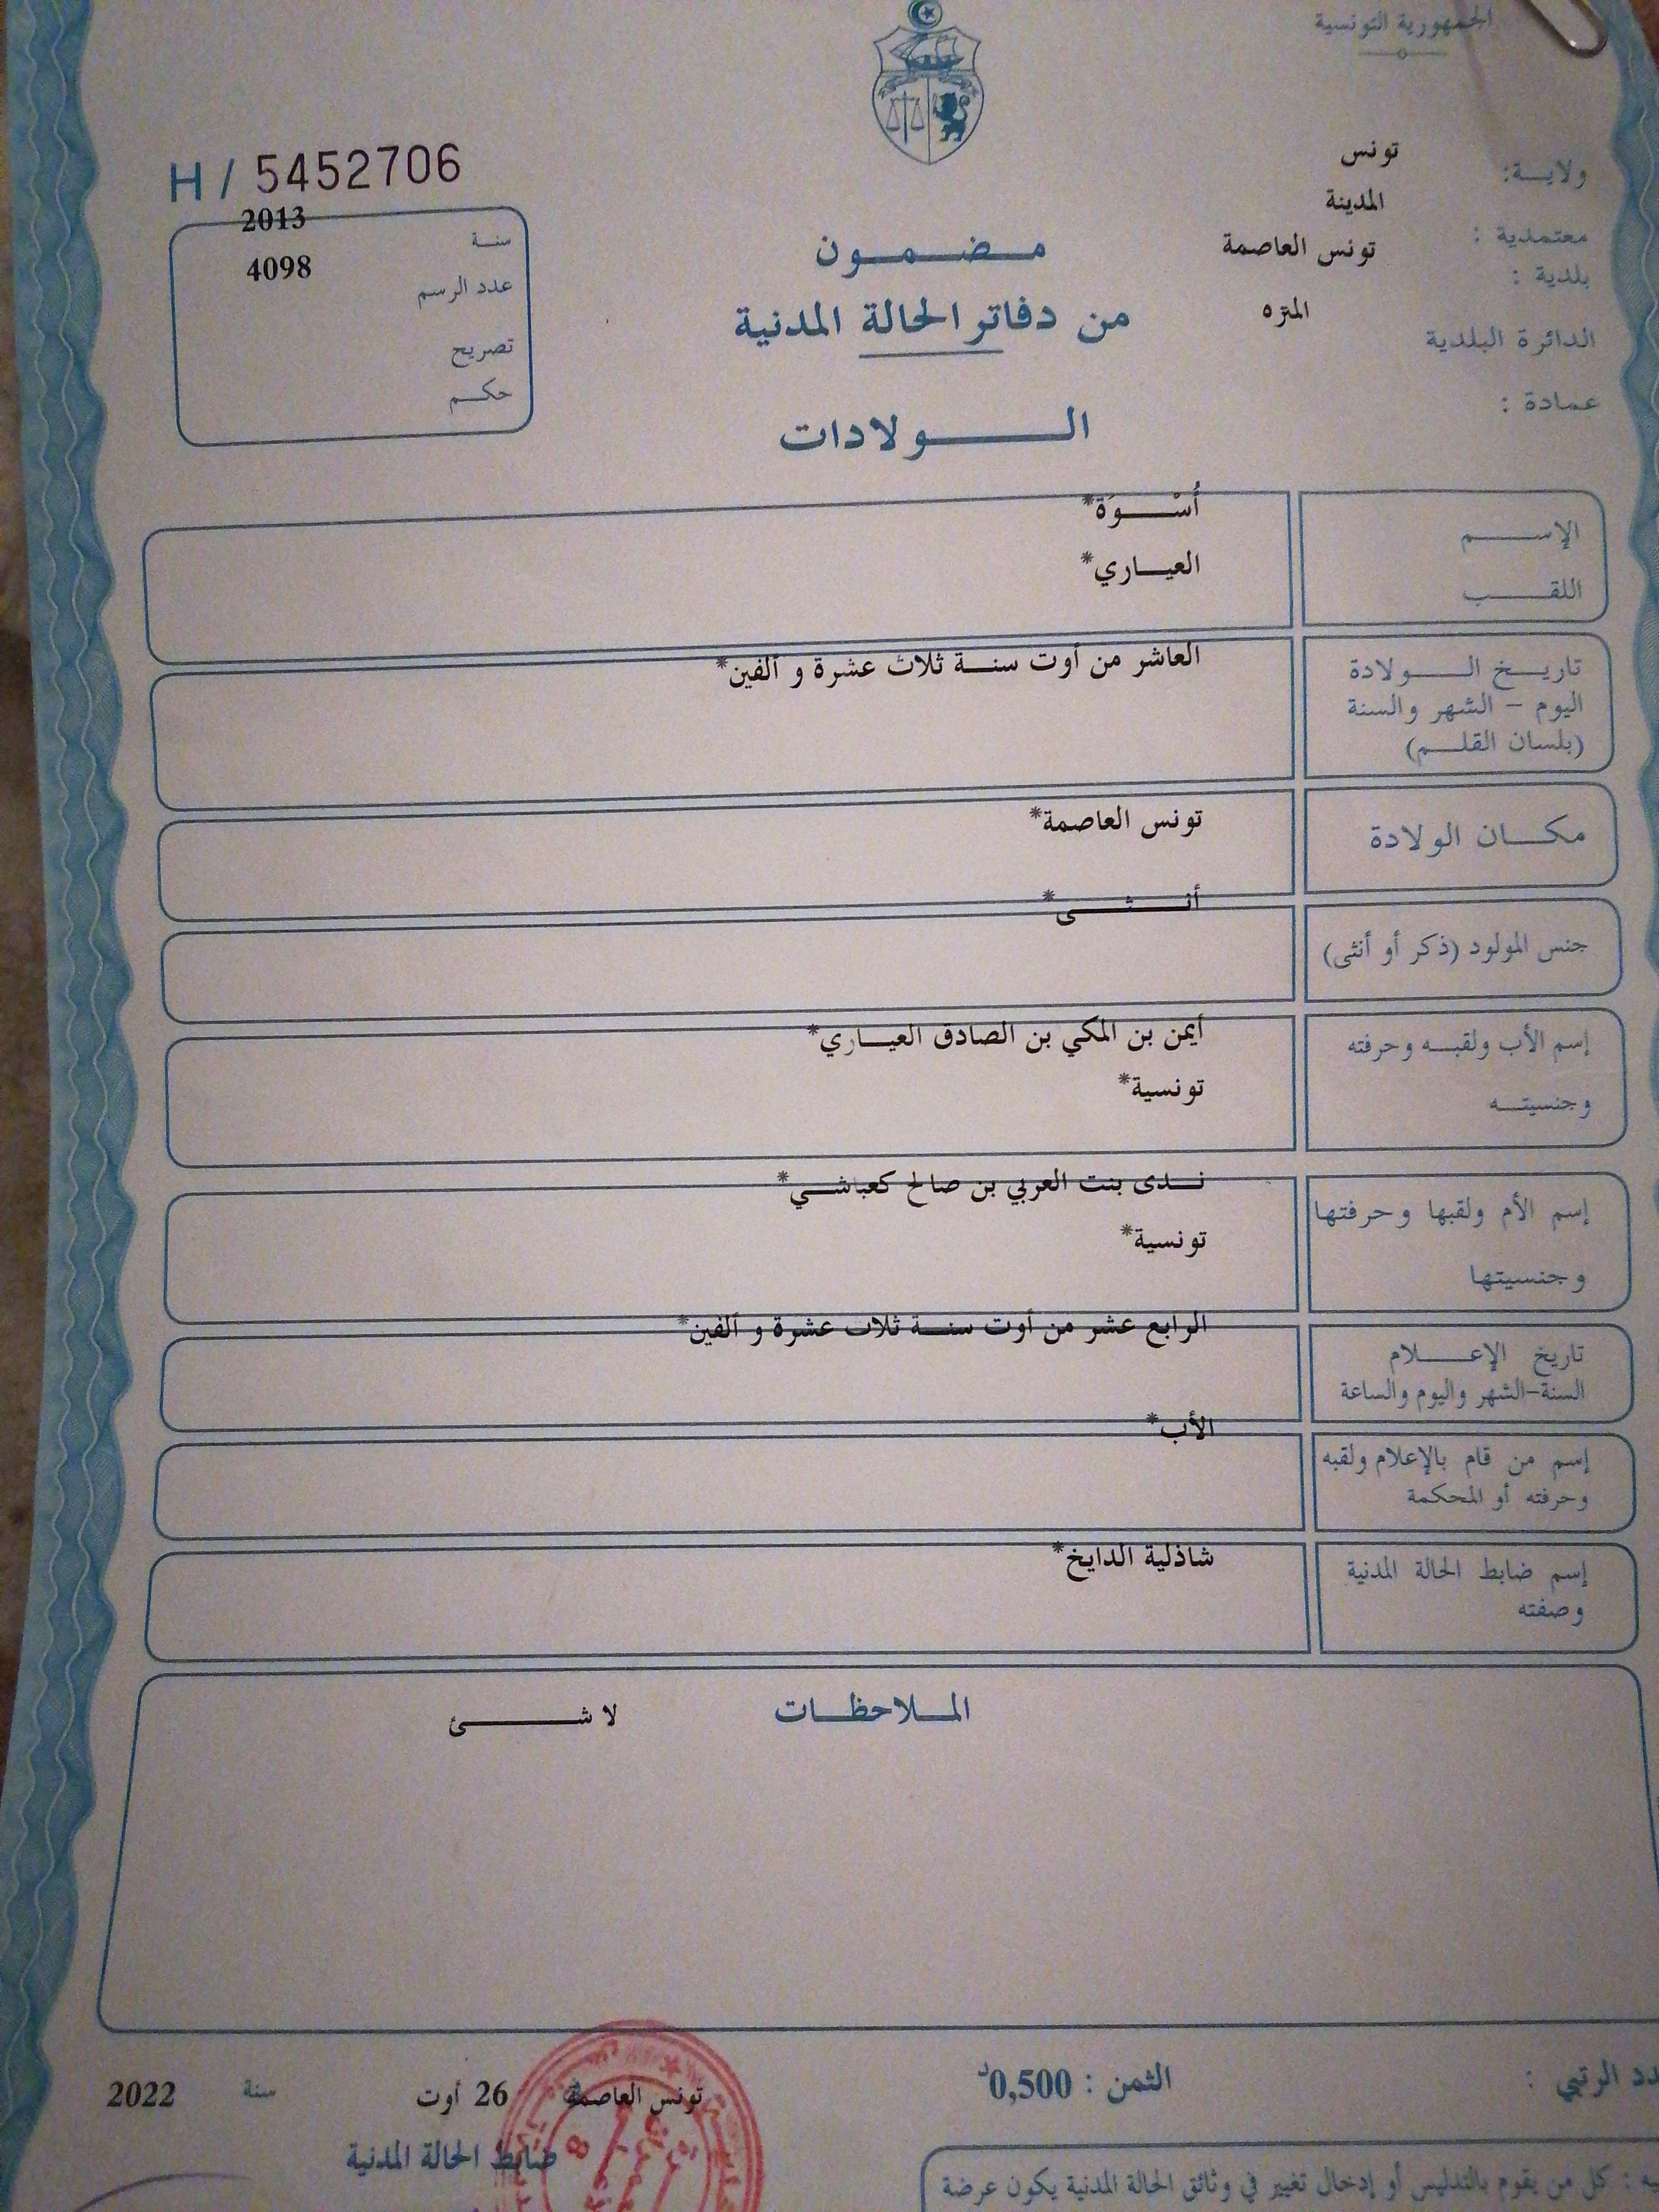 الجمهورية التونسية
ولاية: تونس
معتمدية : المدينة
بلدية : تونس العاصمة
الدائرة البلدية المنزه
عمادة :
H / 5452706
سنة 2013
عدد الرسم 4098
تصريح
حكم
مضمون
من دفاتر الحالة المدنية
الولادات
الإسم أُسْوَة*
اللقب العياري*
تاريخ الولادة العاشر من أوت سنة ثلاث عشرة و ألفين*
اليوم - الشهر والسنة
(بلسان القلم)
مكان الولادة تونس العاصمة*
جنس المولود (ذكر أو أنثى) أنثى*
إسم الأب ولقبه وحرفته أيمن بن المكي بن الصادق العياري*
وجنسيته تونسية*
إسم الأم ولقبها وحرفتها ندى بنت العربي بن صالح كعباشي*
وجنسيتها تونسية*
تاريخ الإعلام الرابع عشر من أوت سنة ثلاث عشرة و ألفين*
السنة-الشهر واليوم والساعة
إسم من قام بالإعلام ولقبه الأب*
وحرفته أو المحكمة
إسم ضابط الحالة المدنية شاذلية الدايخ*
وصفته
الملاحظات لا شئ
الرتبي :
الثمن : 0,500د
تونس العاصمة 26 أوت سنة 2022
ضابط الحالة المدنية
: كل من يقوم بالتدليس أو إدخال تغيير في وثائق الحالة المدنية يكون عرضة